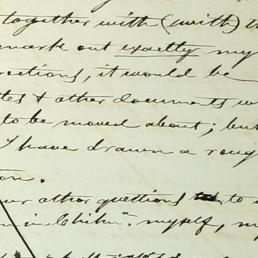 together with (with)
mark out exactly my
rections, it would be
tes & other documents w
to be moved about; but
I have drawn a roug
on.
ur other questions to
in Chihn. myself, m